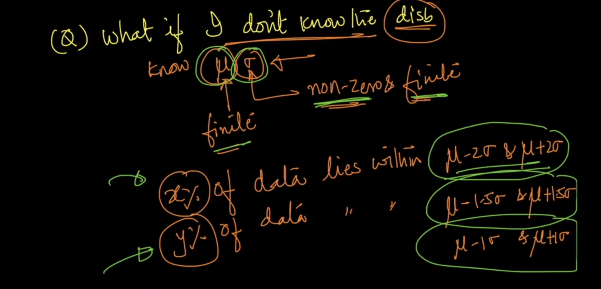 (Q) What if I don't know the disb
know μ σ ←
→ non-zero & finite
finite
x% of data lies within μ-2σ & μ+2σ
y% of data " " μ-1.5σ & μ+1.5σ
μ-1σ & μ+1σ